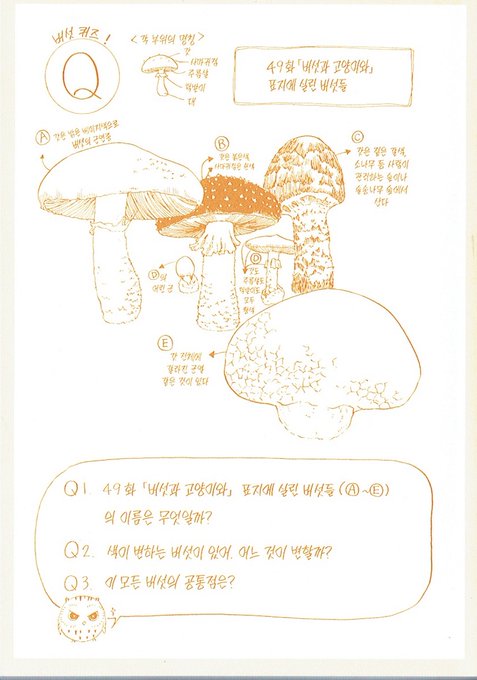 버섯 퀴즈!
Q
< 각 부위의 명칭 >
갓
사마귀점
주름살
턱받이
대
49화 「버섯과 고양이와」
표지에 실린 버섯들
A
갓은 옅은 베이지색으로
버섯의
B
갓은 붉은색
사마귀점은 흰색
C
갓은 짙은 갈색
소나무
D의
어린 균
D
갓도
주름살도
턱받이도
모두
흰색
E
갓
Q1. 49화 「버섯과 고양이와」 표지에 실린 버섯들 (A~E)
의 이름은 무엇일까?
Q2. 색이 변하는 버섯이 있어. 어느 것이 변할까?
Q3. 이 모든 버섯의 공통점은?